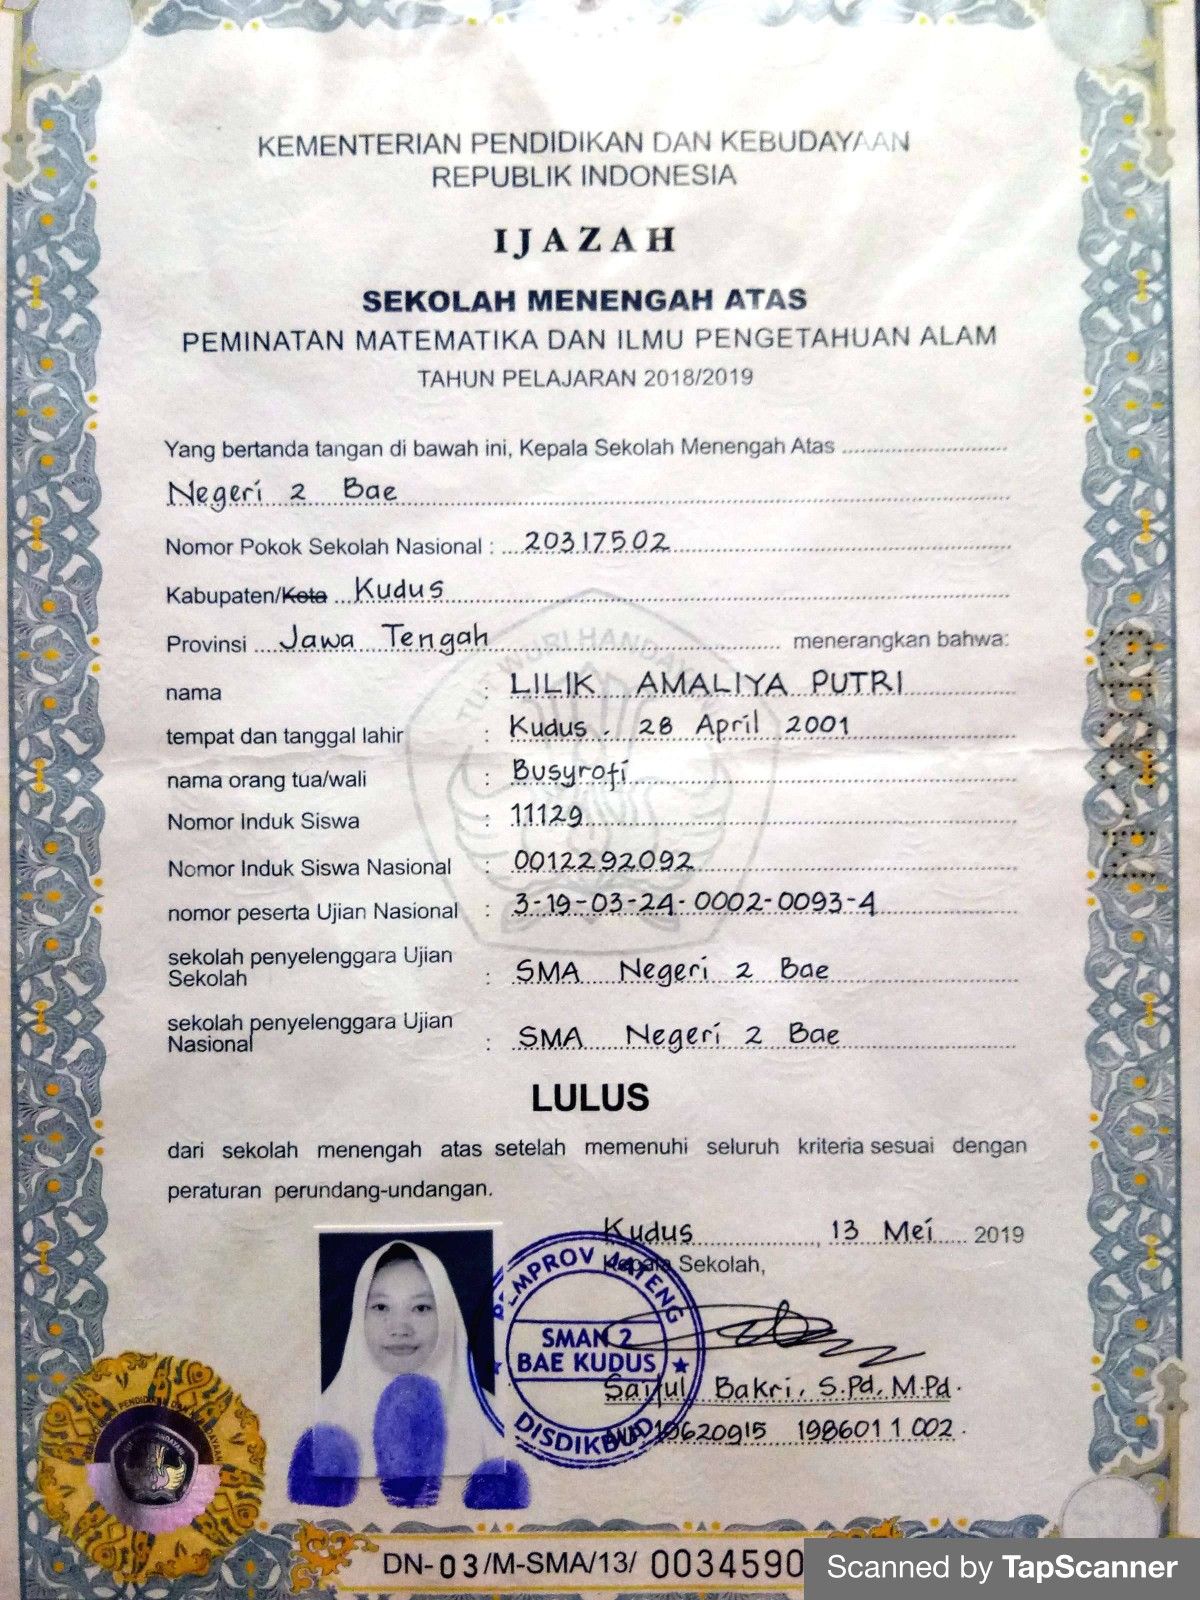 KEMENTERIAN PENDIDIKAN DAN KEBUDAYAAN
REPUBLIK INDONESIA
IJAZAH
SEKOLAH MENENGAH ATAS
PEMINATAN MATEMATIKA DAN ILMU PENGETAHUAN ALAM
TAHUN PELAJARAN 2018/2019
Yang bertanda tangan di bawah ini, Kepala Sekolah Menengah Atas
Negeri 2 Bae
Nomor Pokok Sekolah Nasional : 20317502
Kabupaten/Kota Kudus
Provinsi Jawa Tengah menerangkan bahwa:
nama : LILIK AMALIYA PUTRI
tempat dan tanggal lahir : Kudus, 28 April 2001
nama orang tua/wali : Busyrofi
Nomor Induk Siswa : 11129
Nomor Induk Siswa Nasional : 0012292092
nomor peserta Ujian Nasional : 3-19-03-24-0002-0093-4
sekolah penyelenggara Ujian
Sekolah : SMA Negeri 2 Bae
sekolah penyelenggara Ujian
Nasional : SMA Negeri 2 Bae
LULUS
dari sekolah menengah atas setelah memenuhi seluruh kriteria sesuai dengan
peraturan perundang-undangan.
Kudus, 13 Mei 2019
Kepala Sekolah,
PEMPROV JATENG
SMAN 2
BAE KUDUS
DISDIKBUD
Saiful Bakri, S.Pd, M.Pd.
19620915 198601 1 002.
TUT WURI HANDAYANI
DN-03/M-SMA/13/ 0034590
Scanned by TapScanner